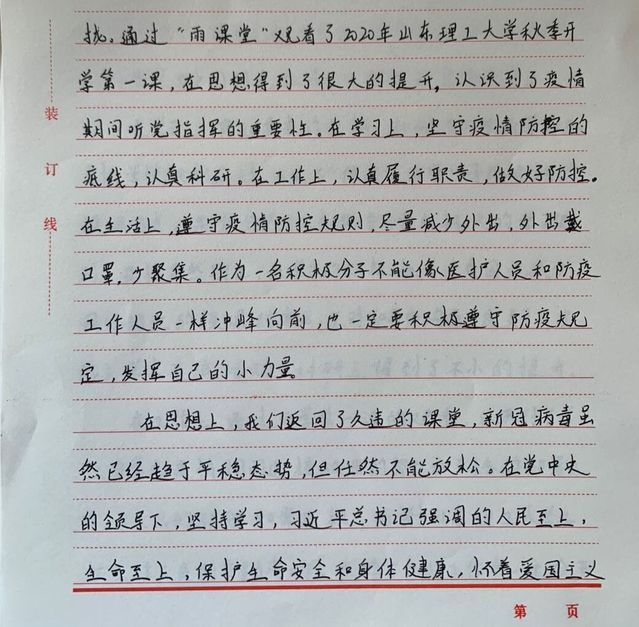 扰。通过“雨课堂”观看了2020年山东理工大学秋季开
学第一课，在思想得到了很大的提升，认识到了疫情
期间听党指挥的重要性。在学习上，坚守疫情防控的
底线，认真科研。在工作上，认真履行职责，做好防控。
在生活上，遵守疫情防控规则，尽量减少外出，外出戴
口罩，少聚集。作为一名积极分子不能像医护人员和防疫
工作人员一样冲峰向前，也一定要积极遵守防疫规
定，发挥自己的小力量。
在思想上，我们返回了久违的课堂，新冠病毒虽
然已经趋于平稳态势，但任然不能放松。在党中央
的领导下，坚持学习，习近平总书记强调的人民至上，
生命至上，保护生命安全和身体健康，怀着爱国主义
装
订
线
第 页